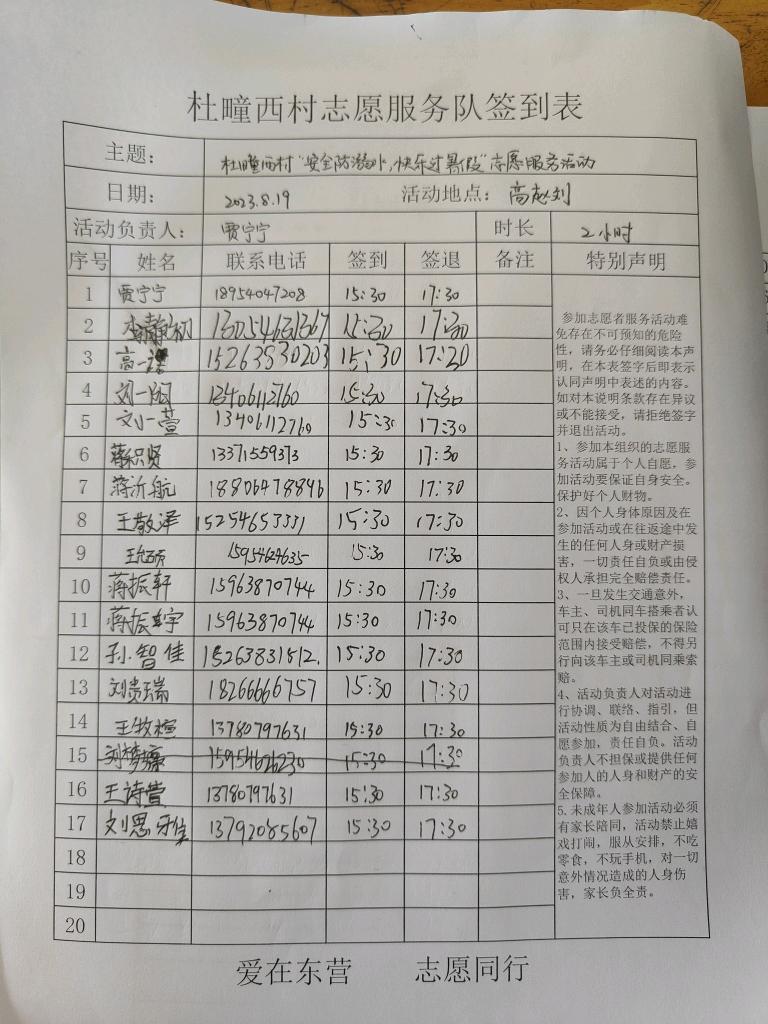 杜疃西村志愿服务队签到表
主题： 杜疃西村"安全防溺水,快乐过暑假"志愿服务活动
日期： 2023.8.19 活动地点： 高赵刘
活动负责人： 贾宁宁 时长 2小时
序号 姓名 联系电话 签到 签退 备注 特别声明
1 贾宁宁 18954047208 15:30 17:30
2 13054631367 15:30 17:30
3 高一 15263830203 15:30 17:20
4 刘一 13406112760 15:30 17:30
5 刘一萱 13406112760 15:30 17:30
6 蒋识贤 13371559373 15:30 17:30
7 蒋沂航 18806478846 15:30 17:30
8 王敬泽 15254653331 15:30 17:30
9 15954624635 15:30 17:30
10 蒋振轩 15963870744 15:30 17:30
11 蒋振宇 15963870744 15:30 17:30
12 孙智佳 15263831812. 15:30 17:30
13 刘贵瑞 18266666757 15:30 17:30
14 王牧楦 13780797631 15:30 17:30
15 刘梦 15954626230 15:30 17:30
16 王诗萱 13780797631 15:30 17:30
17 刘思 13792085607 15:30 17:30
18
19
20
参加志愿者服务活动难
免存在不可预知的危险
性，请务必仔细阅读本声
明，在本表签字后即表示
认同声明中表述的内容。
如对本说明条款存在异议
或不能接受，请拒绝签字
并退出活动。
1、参加本组织的志愿服
务活动属于个人自愿，参
加活动要保证自身安全。
保护好个人财物。
2、因个人身体原因及在
参加活动或在往返途中发
生的任何人身或财产损
害，一切责任自负或由侵
权人承担完全赔偿责任。
3、一旦发生交通意外，
车主、司机同车搭乘者认
可只在该车已投保的保险
范围内接受赔偿，不得另
行向该车主或司机同乘索
赔。
4、活动负责人对活动进
行协调、联络、指引，但
活动性质为自由结合、自
愿参加，责任自负。活动
负责人不担保或提供任何
参加人的人身和财产的安
全保障。
5.未成年人参加活动必须
有家长陪同，活动禁止嬉
戏打闹，服从安排，不吃
零食，不玩手机，对一切
意外情况造成的人身伤
害，家长负全责。
爱在东营 志愿同行